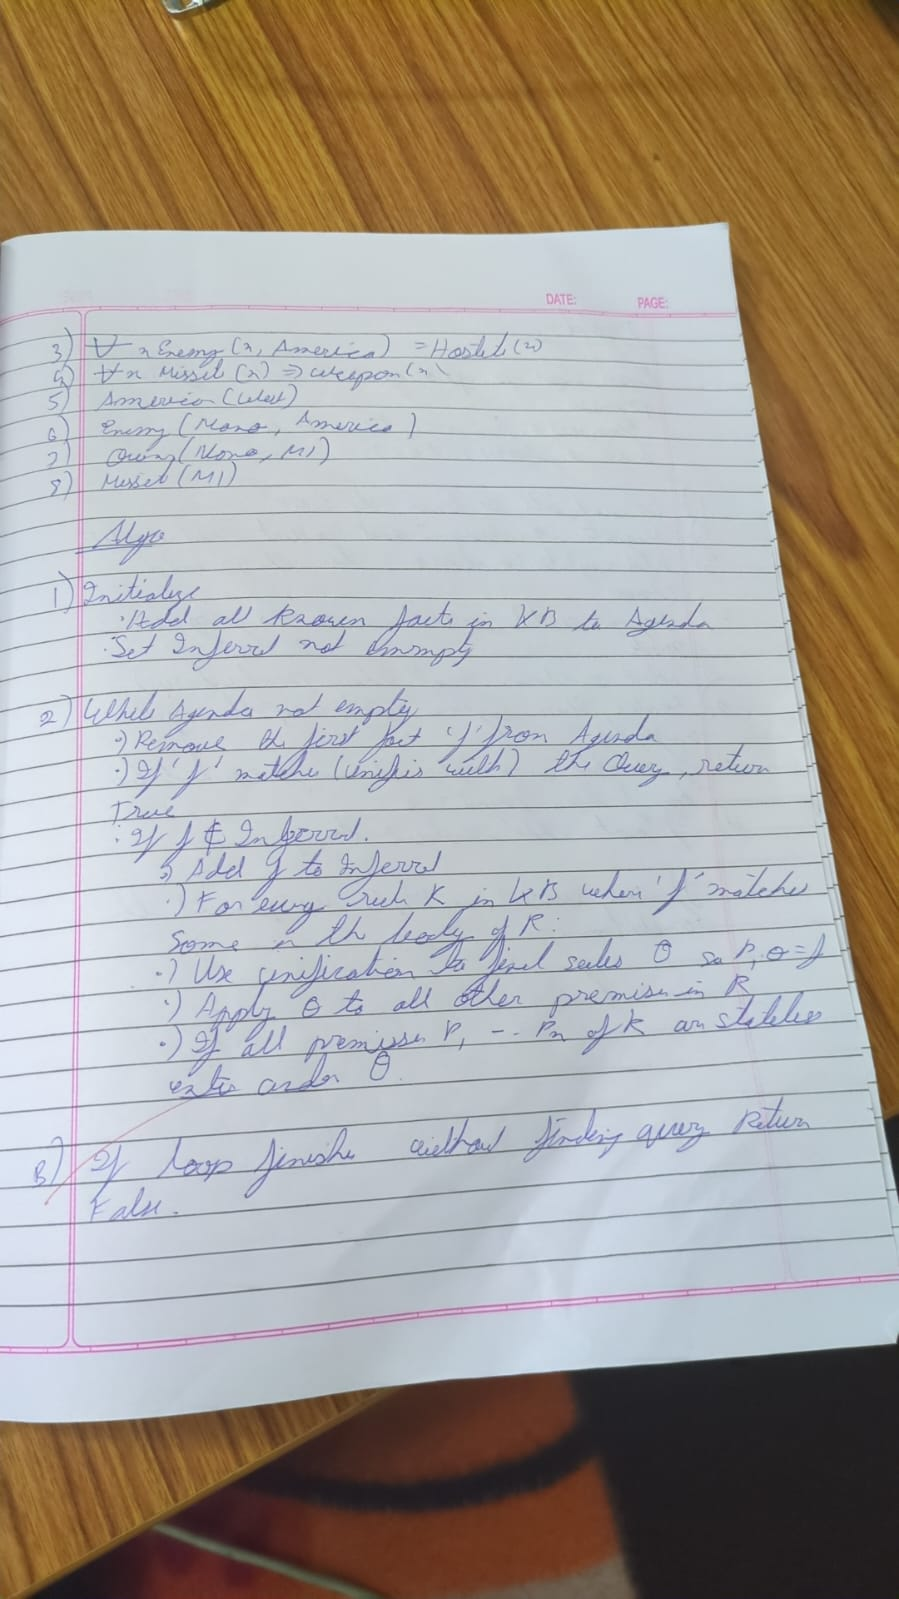 DATE: PAGE:
3) ∀ x Enemy (x, America) = Hostile (x)
4) ∀x Missel (x) => Weapon (x)
5) American (West)
6) Enemy (Nono, America)
7) Owns (Nono, M1)
8) Missel (M1)
Algo
1) Initialize
· Add all known facts in KB to Agenda
· Set Inferred not
2) While Agenda not empty
·) Remove the first fact 'f' from Agenda
·) If 'f' matches (unifies with) the Query, return
True
· If f ∉ Inferred.
·) Add f to Inferred
·) For every rule R in KB where 'f' matches
Some in the body of R:
·) Use unification to find θ so P, θ = f
·) Apply θ to all other premises in R
·) If all premises P, -- Pn of R are
under θ.
3) If loop finishes without finding query Return
False.